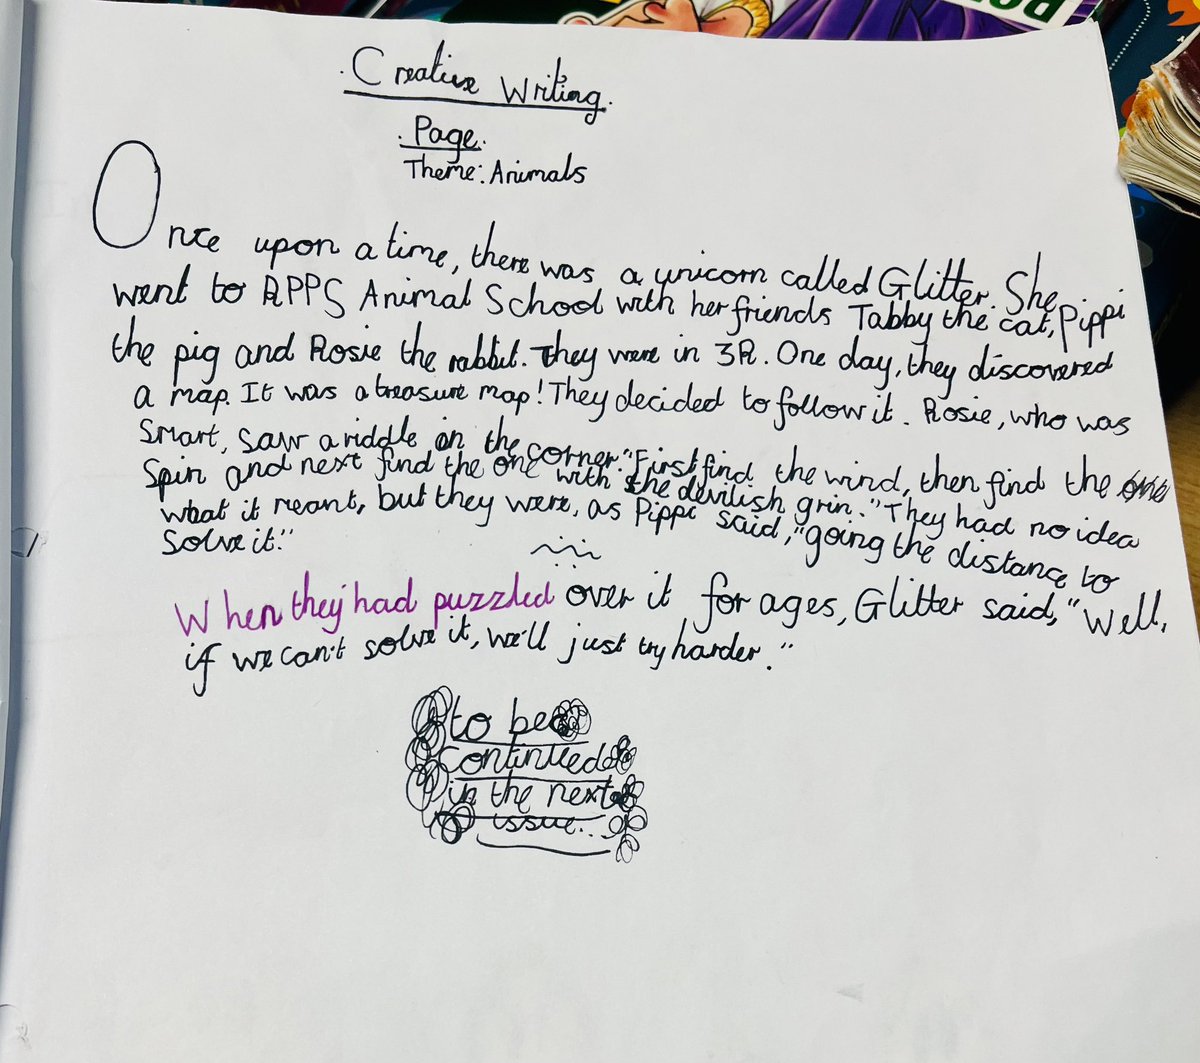 . Creative Writing.
. Page.
Theme: Animals
Once upon a time, there was a unicorn called Glitter. She
went to RPPS Animal School with her friends Tabby the cat, Pippi
the pig and Rosie the rabbit. They were in 3R. One day, they discovered
a map. It was a treasure map! They decided to follow it. Rosie, who was
smart, saw a riddle on the corner. "First find the wind, then find the
spin and next find the one with the devilish grin." They had no idea
what it meant, but they were, as Pippi said, "going the distance to
solve it."
When they had puzzled over it for ages, Glitter said, "Well,
if we can't solve it, we'll just try harder."
to be
continued
in the next
issue...